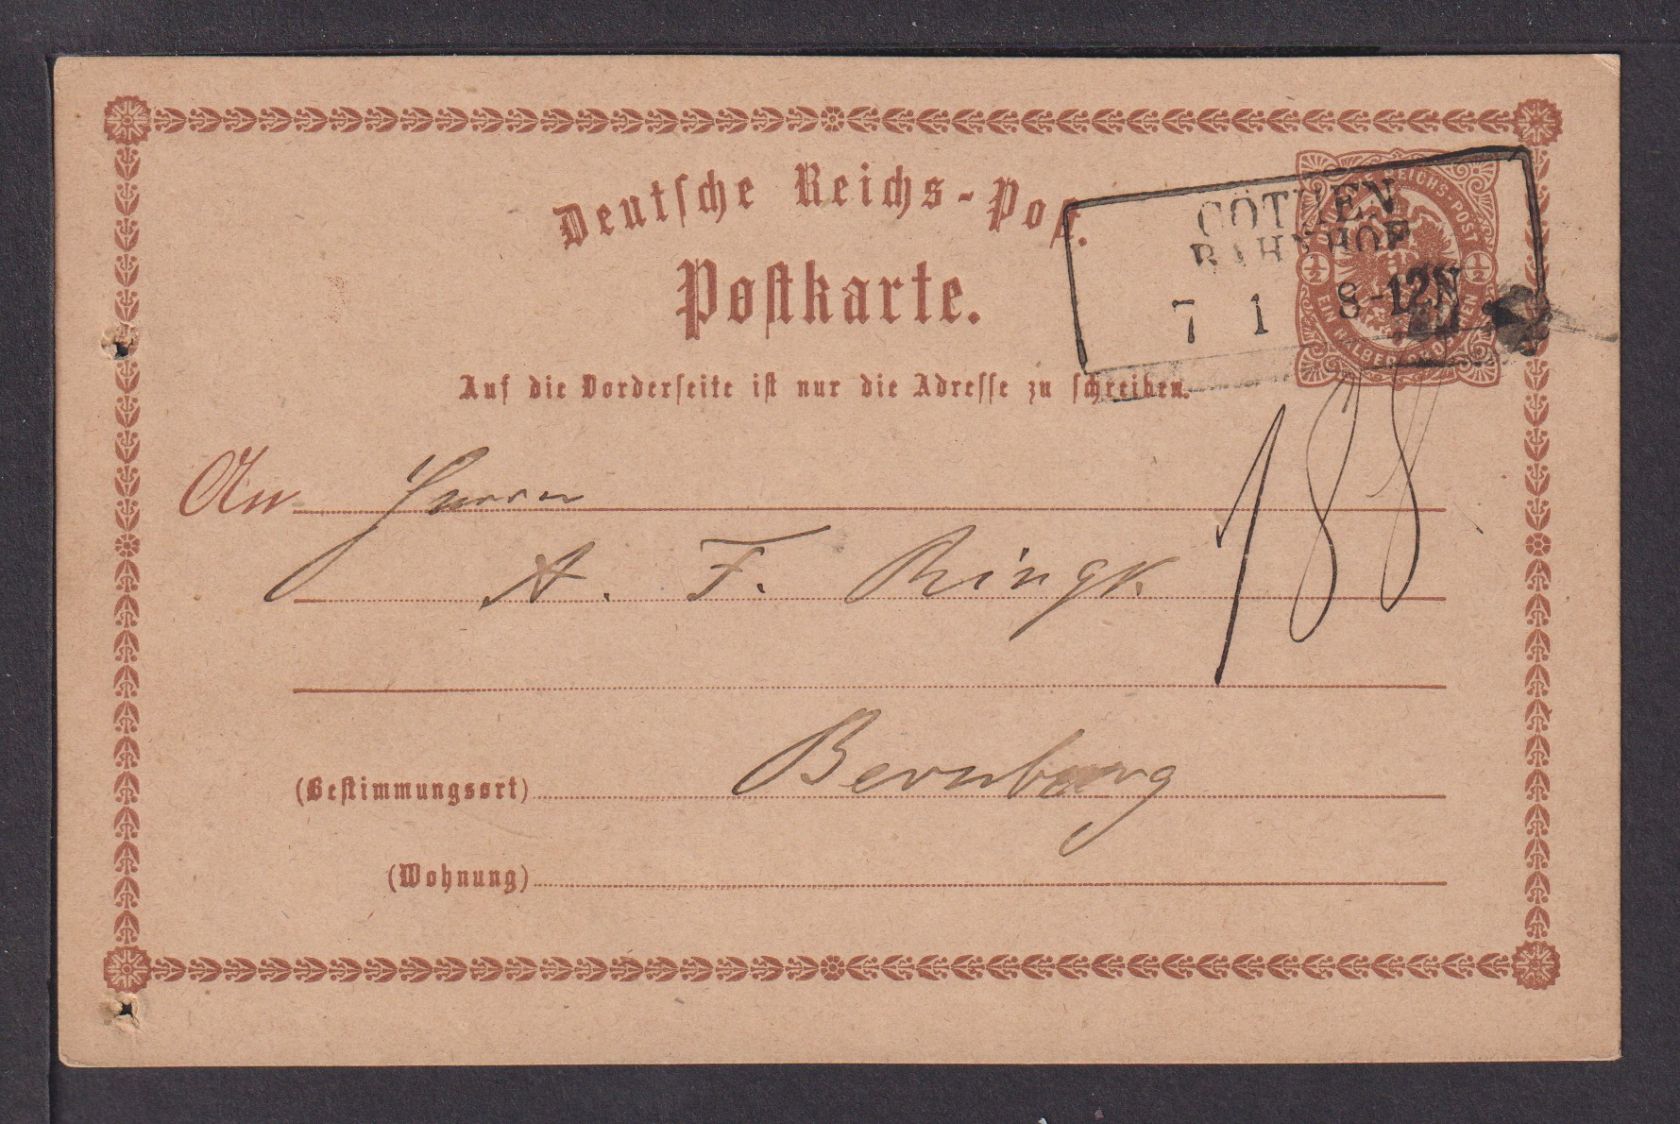 Deutsche Reichs-Post.
Postkarte.
CÖTHEN
BAHNHOF
7 1 8-12N
REICHS-POST
½ ½
EIN HALBER GROSCHEN
Auf die Vorderseite ist nur die Adresse zu schreiben.
An Herrn
A. F. Ringk.
188
(Bestimmungsort) Bernburg
(Wohnung)